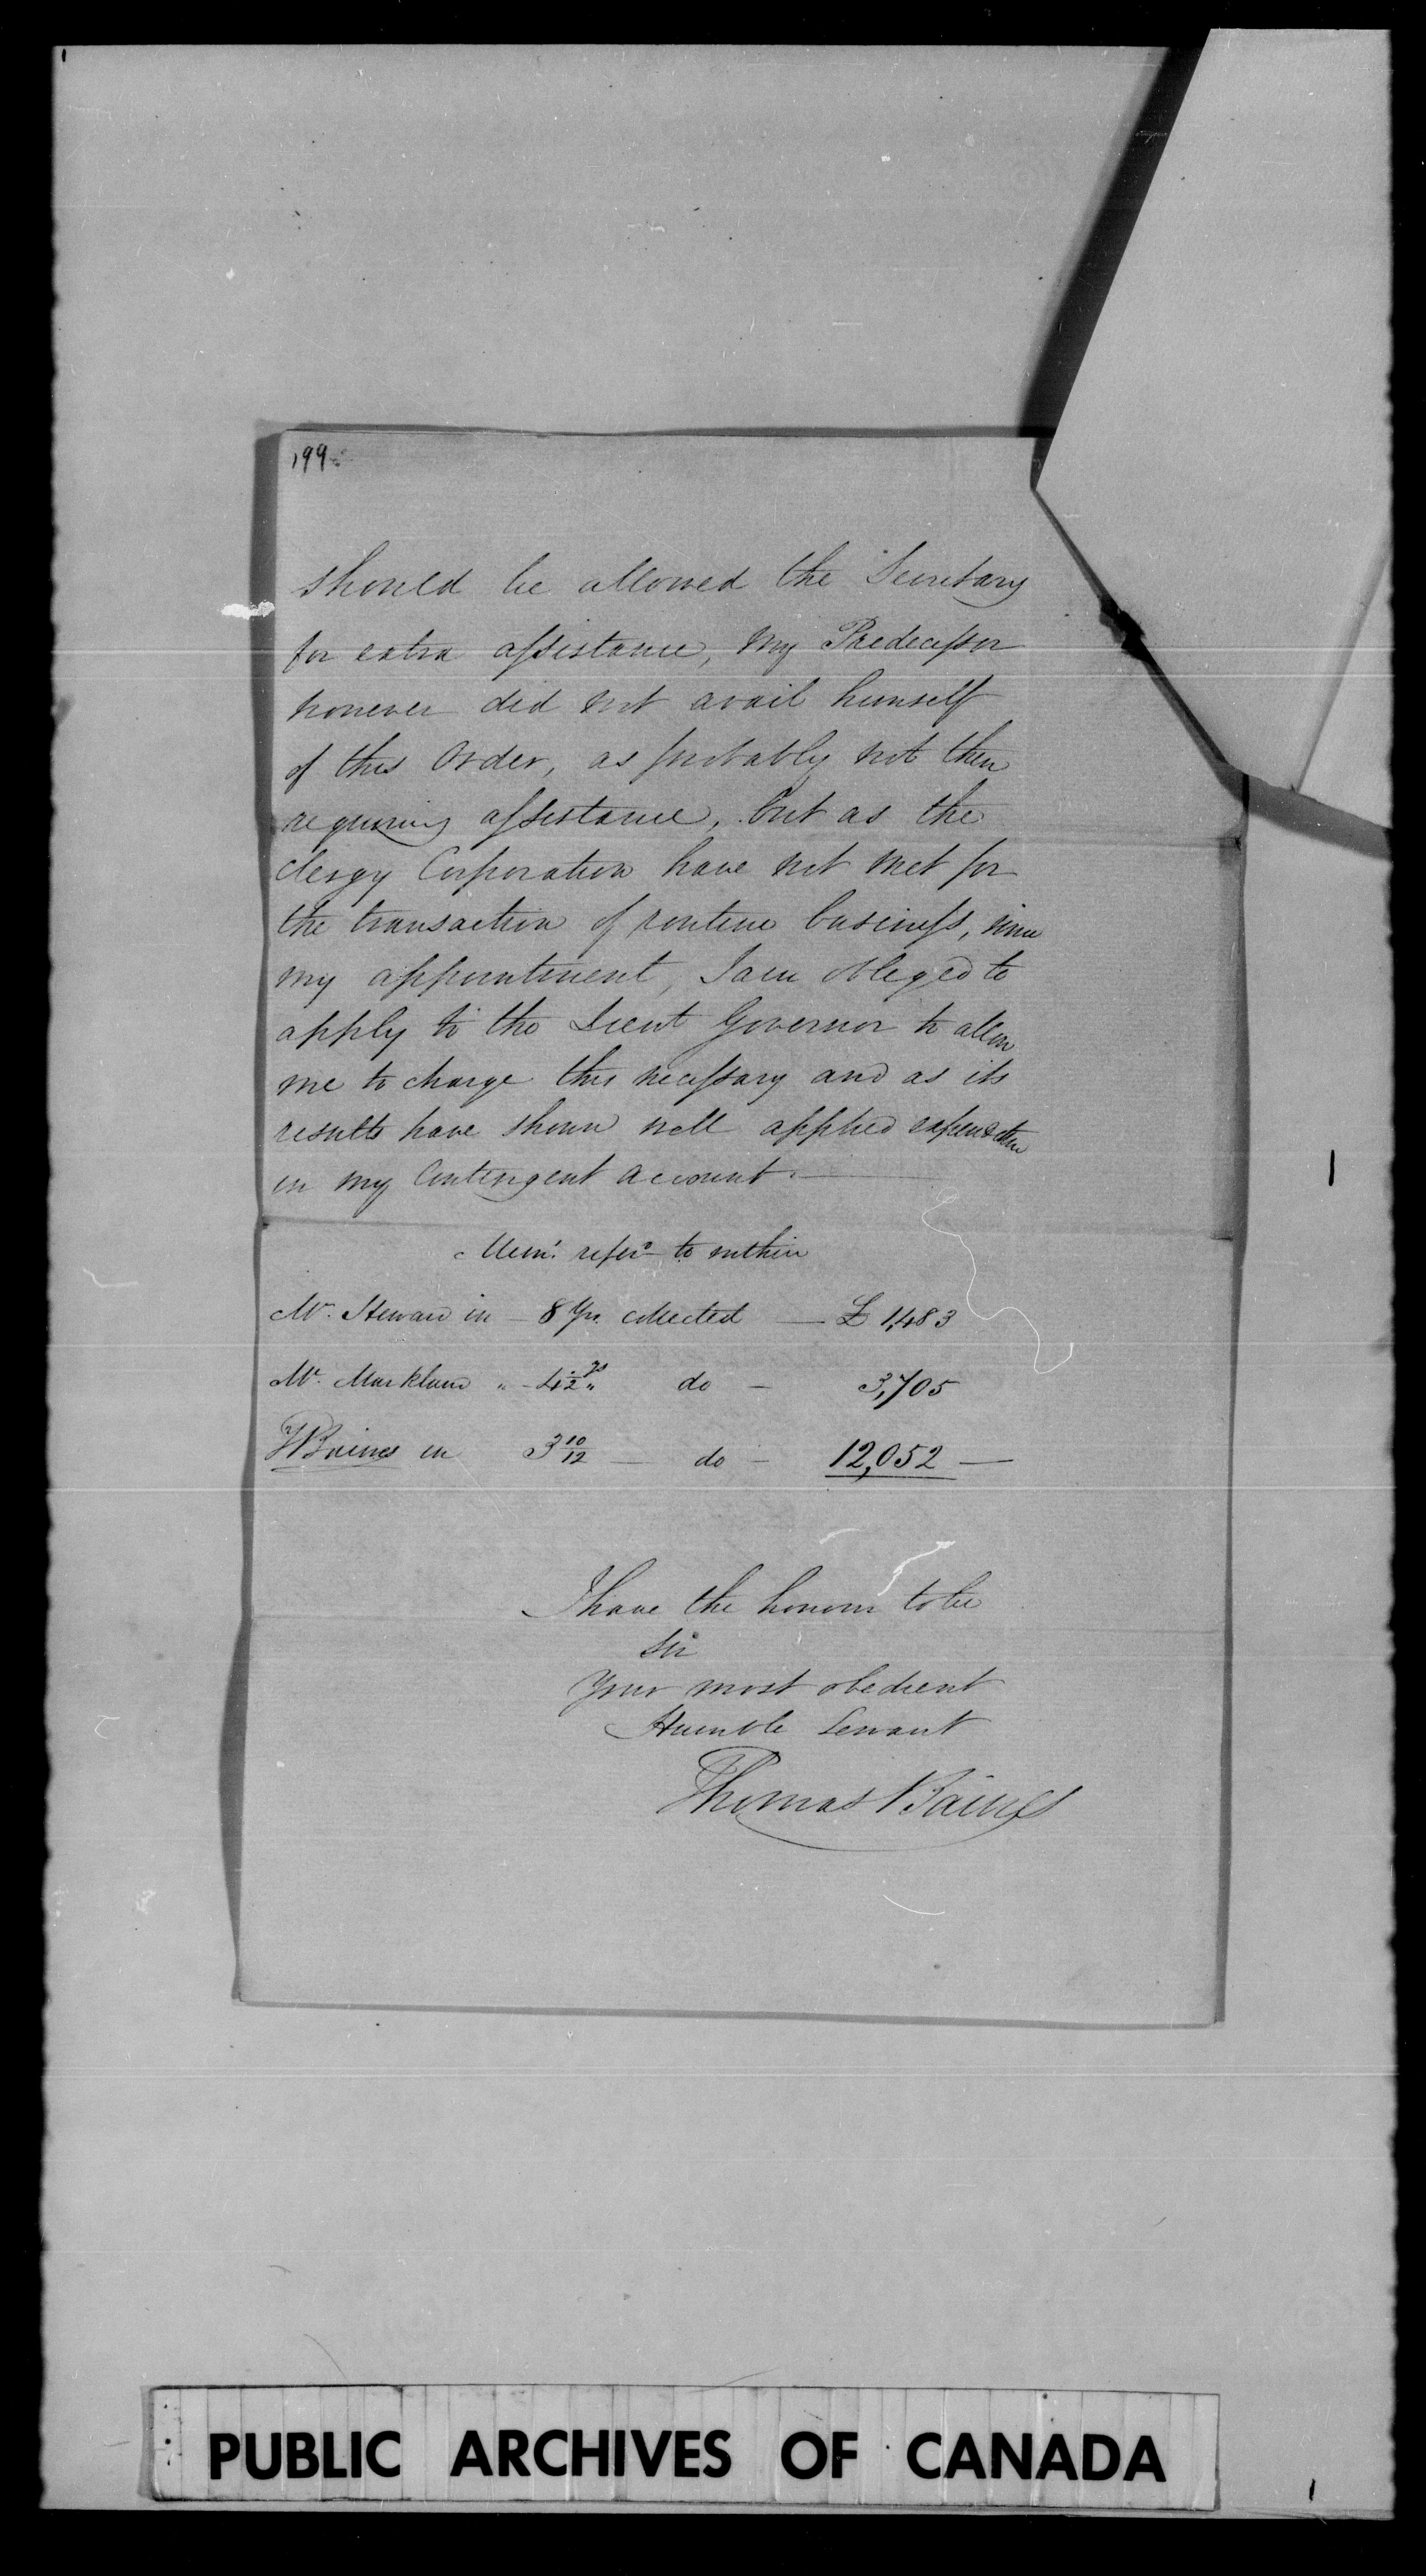 199
should be allowed the Secretary
for extra assistance, my Predecessor
however did not avail himself
of this Order, as probably not then
requiring assistance, but as the
Clergy Corporation have not met for
the transaction of routine business, since
my appointment, I am obliged to
apply to the Lieut Governor to allow
me to charge this necessary and as its
results have shown well applied expenditure
in my Contingent account.
Memo. referd to within
Mr. Steward in - 8 Yrs. collected — £ 1,483
Mr. Markland " - 4 1/2 ys " do - 3,705
TBaines in 3 10/12 — do - 12,052 —
I have the honour to be
Sir
Your most obedient
Humble Servant
Thomas Baines
PUBLIC ARCHIVES OF CANADA